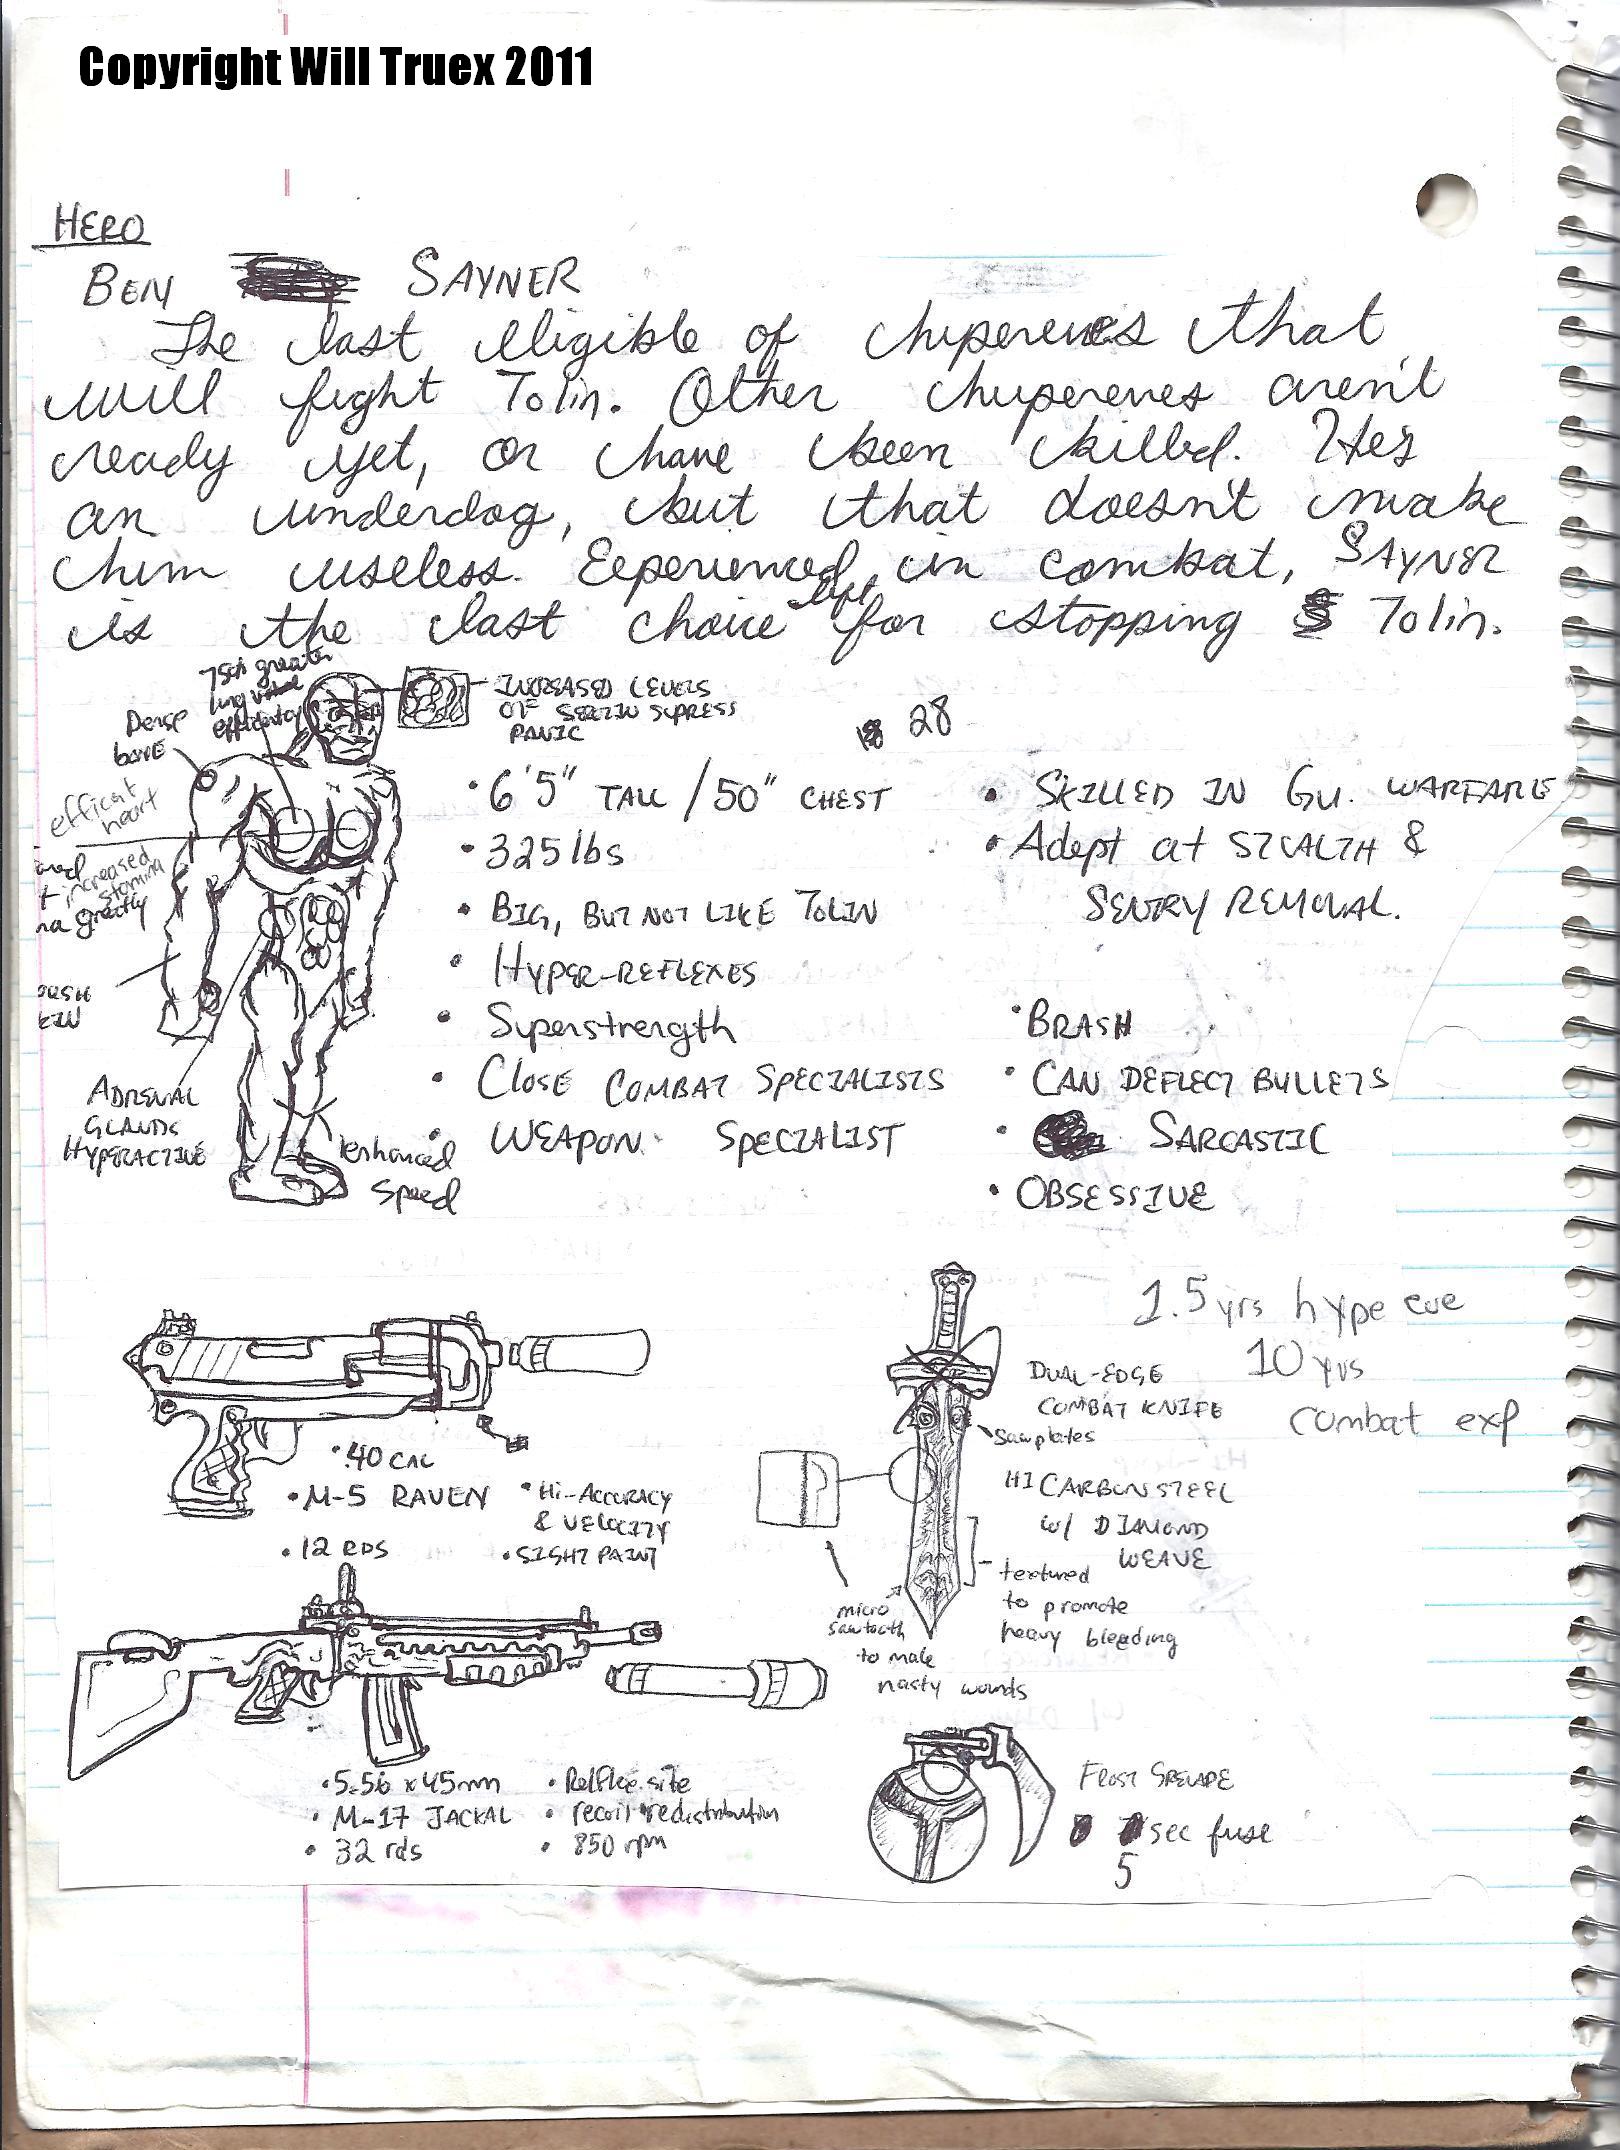 Copyright Will Truex 2011
HERO
BEN SAYNER
The last eligible of
that
will fight Tolin. Other
aren't
ready yet, or have been killed. Hes
an underdog, but that doesn't make
him useless. Experienced in combat, SAYNER
is the last choice left for stopping Tolin.
greater
lung
efficiency
Dense
bone
efficent
heart
increased
stamina
greatly
ADRENAL
GLANDS
HYPERACTIVE
enhanced
speed
INCREASED LEVELS
OF SUPRESS
PANIC
28
• 6'5" TALL / 50" CHEST
• 325 lbs
• BIG, BUT NOT LIKE TOLIN
• HYPER-REFLEXES
• Superstrength
• CLOSE COMBAT SPECIALISTS
• WEAPON SPECIALIST
• SKILLED IN GU. WARFARE
• Adept at STEALTH &
SENTRY REMOVAL.
• BRASH
• CAN DEFLECT BULLETS
• SARCASTIC
• OBSESSIVE
1.5 yrs hype eve
10 yrs
combat exp
• .40 CAL
• M-5 RAVEN
• 12 RDS
• Hi-ACCURACY
& VELOCITY
• SIGHT PAINT
DUAL-EDGE
COMBAT KNIFE
Sawplates
HI CARBON STEEL
w/ DIAMOND
WEAVE
textured
to promote
heavy bleeding
micro
sawtooth
to make
nasty wounds
• 5.56 x 45mm
• M-17 JACKAL
• 32 rds
site
• recoil redistribution
• 850 rpm
FROST GRENADE
sec fuse
5